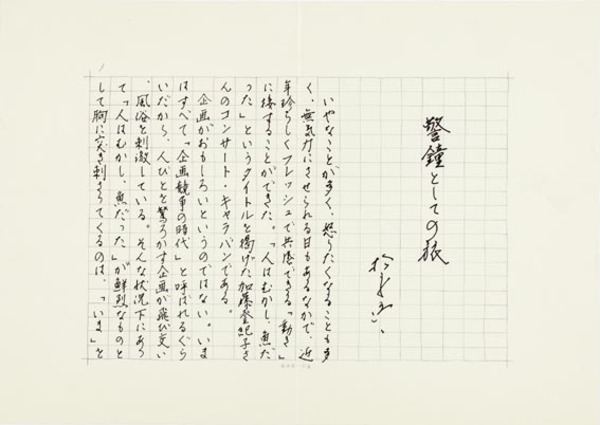 警鐘としての旅
いやなことが多く、怒りたくなることも多
く、無気力にさせられる日もあるなかで、近
年珍らしくフレッシュで共感できる「動き」
に接することができた。「人はむかし、魚だ
った」というタイトルを掲げた加藤登紀子さ
んのコンサート・キャラバンである。
企画がおもしろいというのではない。いま
はすべて「企画競争の時代」と呼ばれるぐら
いだから、人びとを驚ろかす企画が飛び交い
、風俗を刺激している。そんな状況下にあっ
て「人はむかし、魚だった」が鮮烈なものと
して胸に突き刺さってくるのは、「いま」と